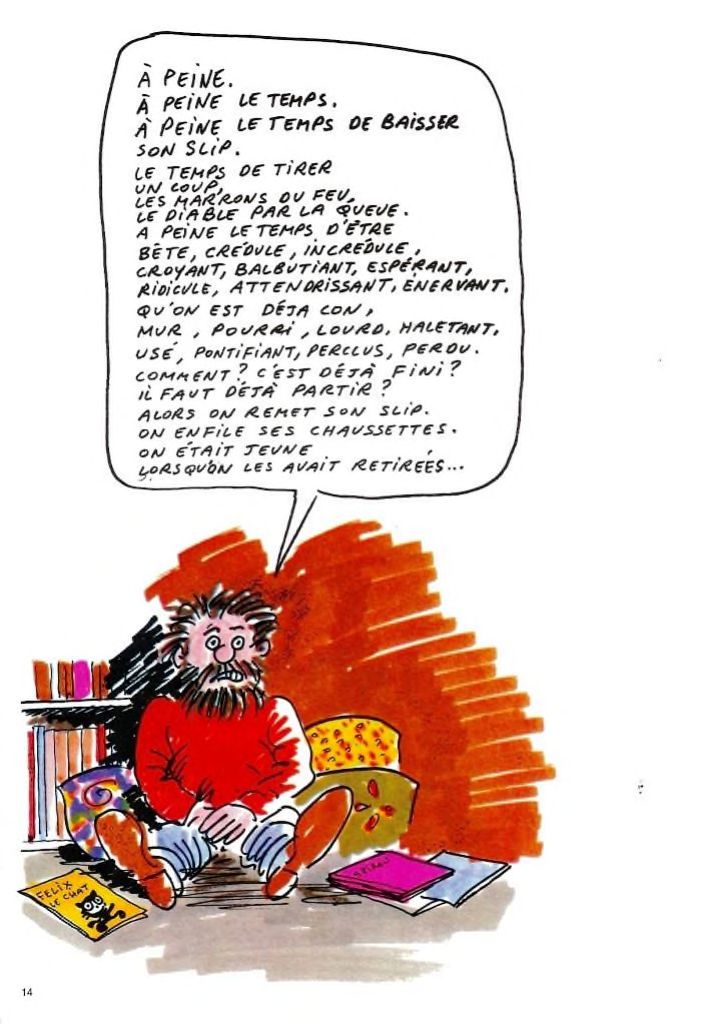 À PEINE.
À PEINE LE TEMPS.
À PEINE LE TEMPS DE BAISSER
SON SLIP.
LE TEMPS DE TIRER
UN COUP,
LES MARRONS DU FEU,
LE DIABLE PAR LA QUEUE.
A PEINE LE TEMPS D'ÊTRE
BÊTE, CRÉDULE, INCRÉDULE,
CROYANT, BALBUTIANT, ESPÉRANT,
RIDICULE, ATTENDRISSANT, ÉNERVANT.
QU'ON EST DÉJA CON,
MUR, POURRI, LOURD, HALETANT,
USÉ, PONTIFIANT, PERCLUS, PERDU.
COMMENT? C'EST DÉJÀ FINI?
IL FAUT DÉJÀ PARTIR?
ALORS ON REMET SON SLIP.
ON ENFILE SES CHAUSSETTES.
ON ÉTAIT JEUNE
LORSQU'ON LES AVAIT RETIRÉES...
FELIX
LE CHAT
SPIROU
14